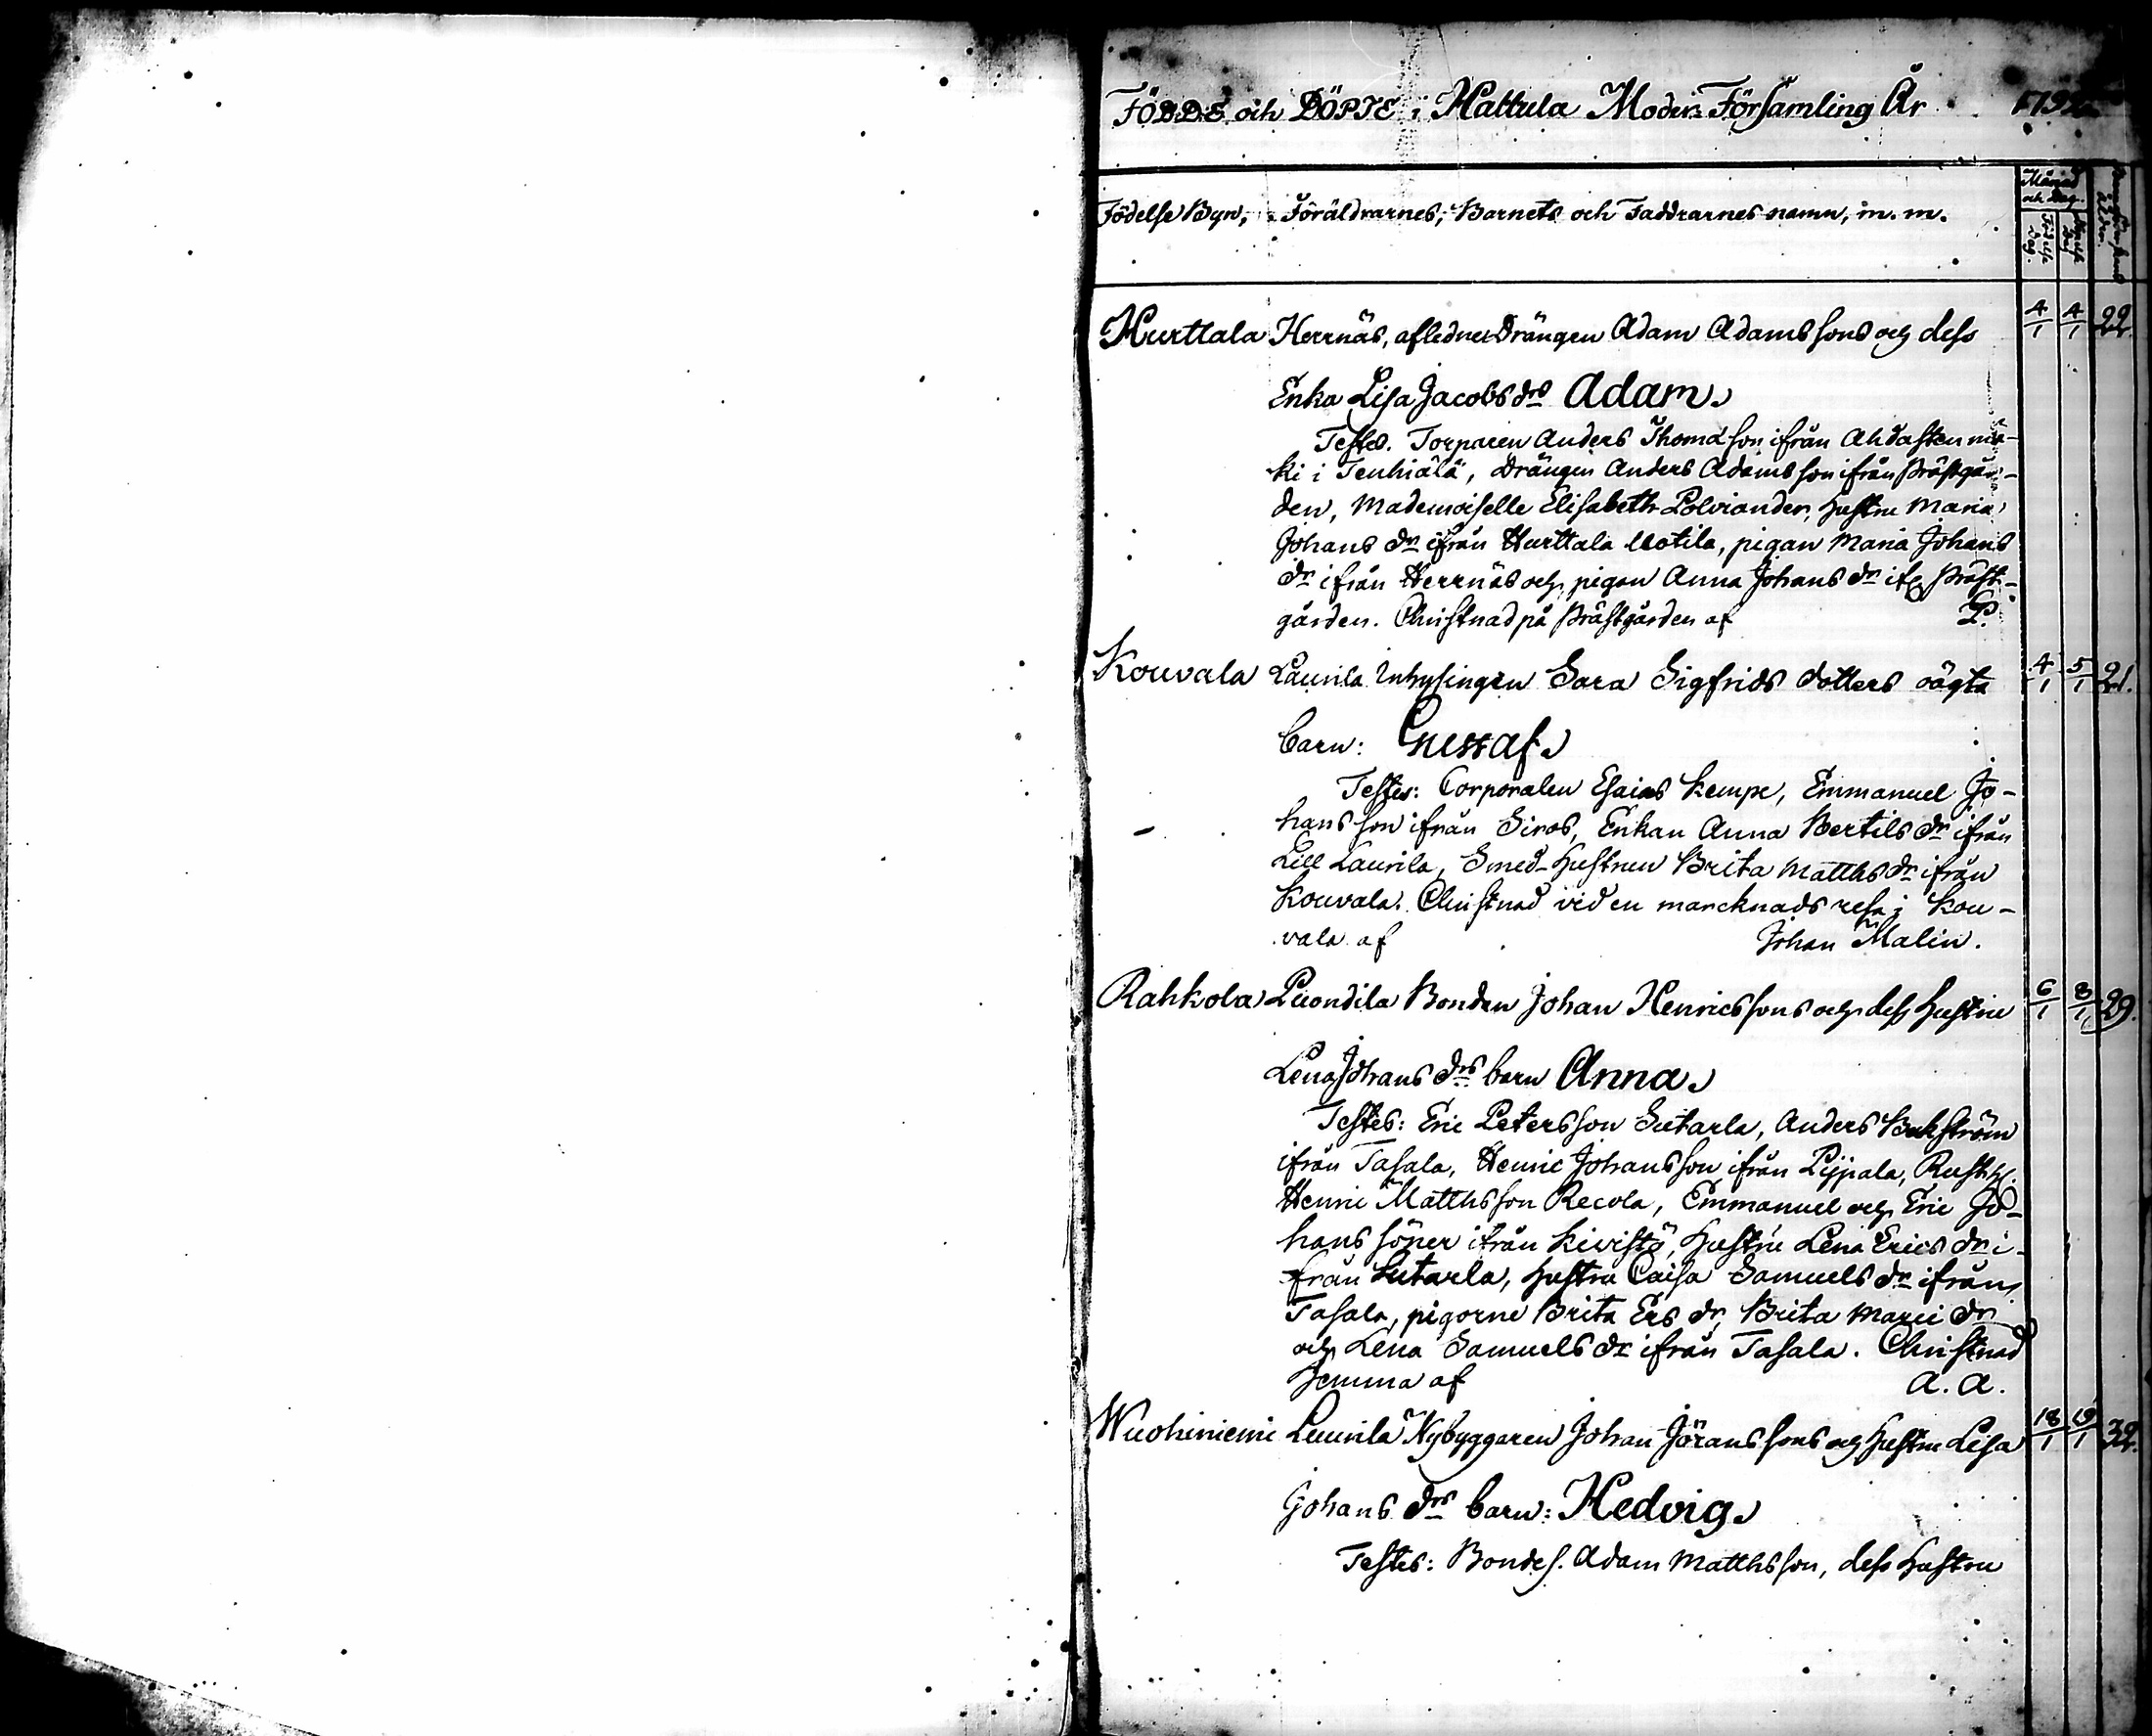 FÖDDE och DÖPTE i Hattula Moder Församling År
Födelse Byn, Föräldrarnes, Barnets och Faddrarnes namn, m. m.
Månad och dag.
Hurttala Herrnäs, aflednes Drängen Adam Adamssons och dess 4/1 4/1 22.
Enka Lisa Jacobs drs Adam.
Testes. Torparen Anders Thomasson ifrån Ahdastenmä-
ki i Tenhiälä, Drängen Anders Adamsson ifrån Prästgår-
den, Mademoiselle Elisabeth Polviander, hustru Maria
Johans dr ifrån Hurttala Uotila, pigan Maria Johans
dr ifrån Herrnäs och pigan Anna Johans dr ifr Präst-
gården. Christnad på Prästgården af P.
Kouvala Laurila Inhysingen Sara Sigfrids dotters oägta 4/1 5/1 21.
barn: Gustaf.
Testes: Corporalen Esaias Kempe, Emmanuel Jo-
hansson ifrån Siros, Enkan Anna Bertils dr ifrån
Lill Laurila, Smed-Hustrun Brita Matths dr ifrån
Kouvala. Christnad vid en marcknads resa i Kou-
vala af Johan Malin.
Rahkola Puondila Bonden Johan Henricssons och dess hustru 6/1 8/1 29.
Lena Johans drs barn Anna.
Testes: Eric Petersson Sutarla, Anders Bakström
ifrån Tasala, Henric Johansson ifrån Pijpala, Rusth.
Henric Matthsson Recola, Emmanuel och Eric Jo-
hans söner ifrån Kivistö, Hustru Lena Erics dr i-
från Sutarla, hustru Caisa Samuels dr ifrån
Tasala, pigorne Brita Ers dr, Brita dr
och Lena Samuels dr ifrån Tasala. Christnad
hemma af A. A.
Wuohiniemi Laurila Nybyggaren Johan Jöranssons och hustru Lisa 18/1 19/1 32.
Johans drs barn: Hedvig.
Testes: Bondes. Adam Matthsson, dess hustru